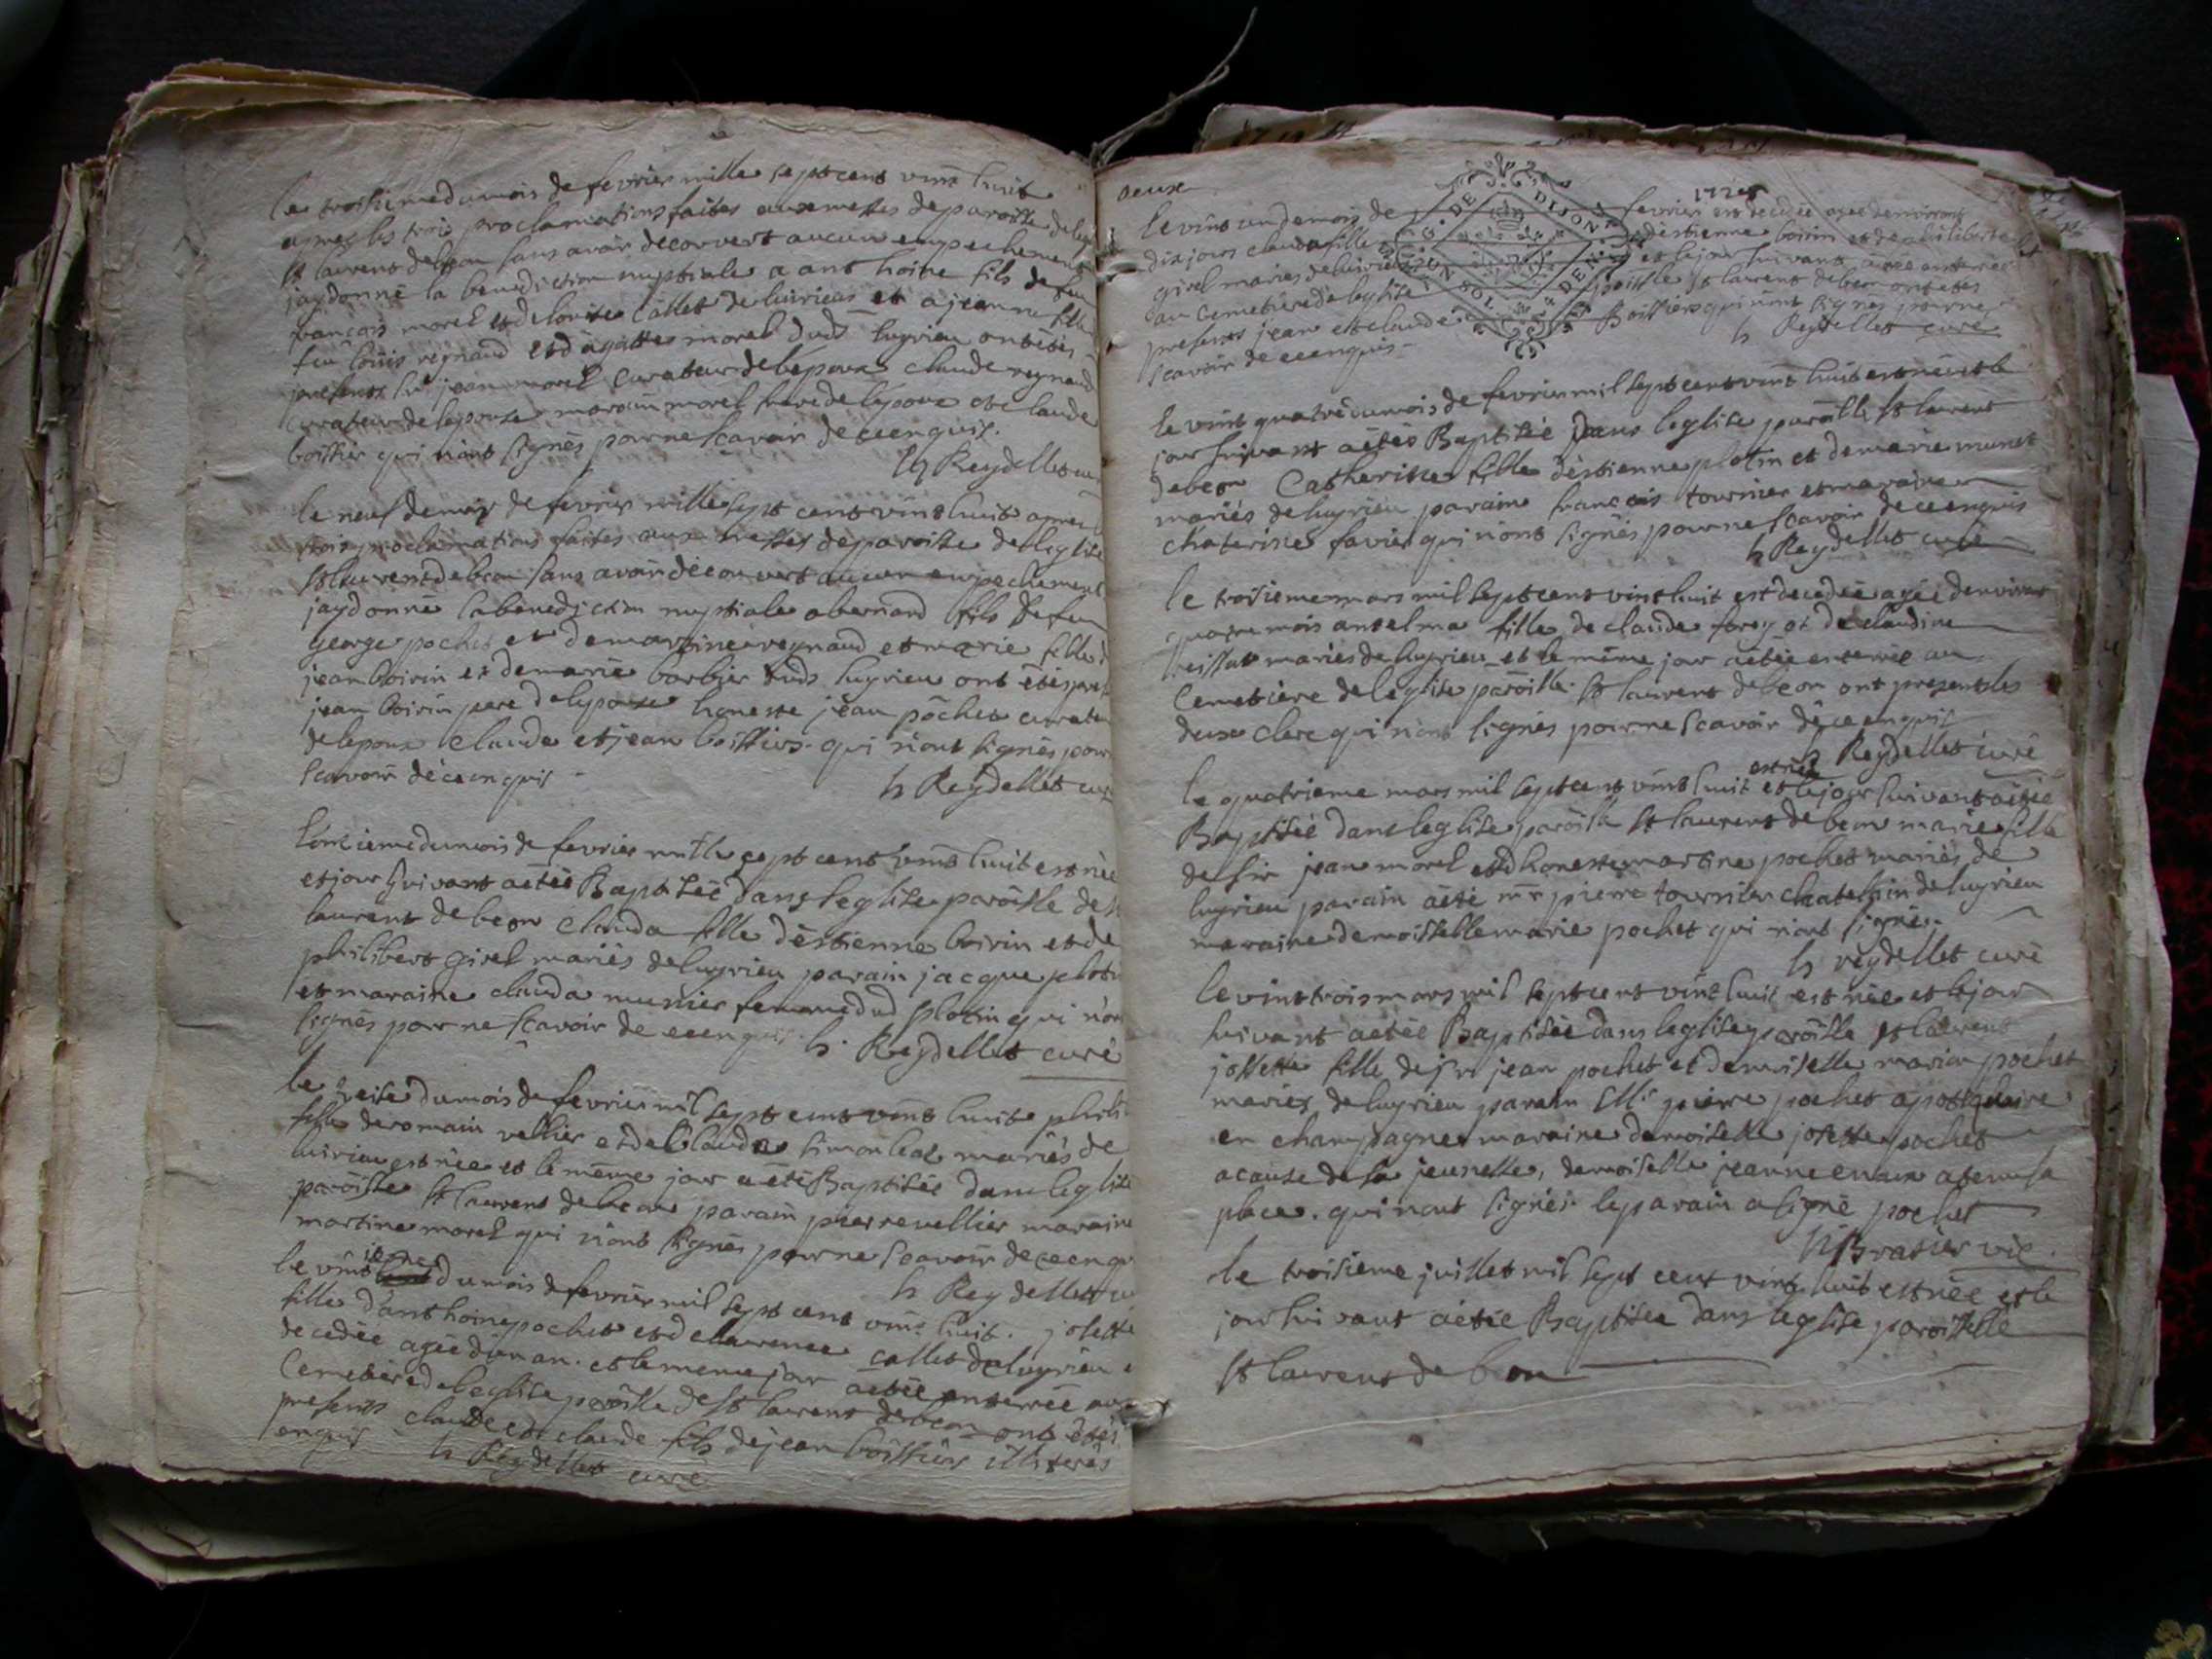 le troisieme du mois de fevrier mille sept cent vint huit
apres les trois proclamations faites aux messes de paroisse de
st laurent de beon sans avoir decouvert aucun empechement
jay donné la benediction nuptiale a anthoine fils de feu
francois morel et de louise callet de luirieu et a jeanne fille
feu louis reynaud et d'agatte morel dud luyrieu ont étés
presents jean morel curateur de l'epoux claude reynaud
curateur de lepouse morel frere de lepoux et claude
boissier qui n'ont signés pour ne scavoir de ce enquis.
h Reydellet
le neuf de mois de fevrier mille sept cent vint huit apres
trois proclamations faites aux messes de paroisse de leglise
st laurent de beon sans avoir decouvert aucun empechement
jay donné la benediction nuptiale a bernard fils de feu
george pochet et de martine reynaud et marie fille
jean boirin et de marie barbier dud luyrieu ont étés
jean boirin pere de lepouse honeste jean pochet
de lepoux claude et jean boissier qui n'ont signés pour
scavoir de ce enquis
h Reydellet
l'onzieme du mois de fevrier mille sept cent vint huit est née
et jour suivant a étée Baptisée dans leglise paroisse de
laurent de beon Clauda fille d'estienne boirin et de
philiberte girel mariés de luyrieu parain jacque
et maraine clauda munier femme dud plotin qui n'ont
signés pour ne scavoir de ce enquis h Reydellet curé
le treise du mois de fevrier mil sept cent vint huit
fille de romain vellier et de Clauda mariés de
luirieu est née et le même jour a été Baptisée dans leglise
paroisse st laurent de beon parain pierre vellier maraine
martine morel qui n'ont signés pour ne scavoir de ce
h Reydellet
le vint du mois de fevrier mil sept cent vint huit josette
fille d'anthoine pochet et de laurence callet de luyrieu
decedée agée d'un an et le meme jour a étée enterrée au
Cemetiere de leglise paroisse de st laurent de beon ont étés
presents claude et claude fils de jean boissier illiterés
enquis h Reydellet curé
deux
1728
le vint un de mois de fevrier est decedée agée d'environ
dix jours clauda fille d'estienne boirin et de philiberte
girel mariés de luirieu et le jour suivant a été enterrée
au cemetiere de leglise paroisse st laurent de beon ont étés
presents jean et claude Boissier qui n'ont signés pour ne
scavoir de ce enquis h Reydellet curé
DE DIJON
le vint quatre du mois de fevrier mil sept cent vint huit est née et le
jour suivant a étée Baptisée dans leglise paroisse st laurent
de beon Catherine fille d'estienne plotin et de marie munet
mariés de luyrieu parain francois tournier et maraine
chaterine favier qui n'ont signés pour ne scavoir de ce enquis
h Reydellet curé
le troisieme mars mil sept cent vint huit est decedée agée d'environ
quatre mois anselma fille de claude forey et de claudine
mariés de luyrieu et le même jour a étée enterrée au
Cemetiere de leglise paroisse st laurent de beon ont presents les
deux clerc qui n'ont signés pour ne scavoir de ce enquis
h Reydellet curé
est née
le quatrieme mars mil sept cent vint huit et le jour suivant a étée
Baptisée dans leglise paroisse st laurent de beon marie fille
de sir jean morel et d'honeste martine pochet mariés de
luyrieu parain a été mr pierre tournier chatellain de luyrieu
maraine demoiselle marie pochet qui n'ont signé
h reydellet curé
le vint trois mars mil sept cent vint huit est née et le jour
suivant a étée Baptisée dans leglise paroisse st laurent
josette fille de sr jean pochet et demoiselle marie pochet
mariés de luyrieu parain pierre pochet apotiquaire
en champagne maraine demoiselle josette pochet
a cause de sa jeunesse, demoiselle jeanne a tenu sa
place. qui n'ont signés le parain a signé pochet
h Brasier vic.
le troisieme juillet mil sept cent vint huit est née et le
jour suivant a étée Baptisée dans leglise paroisselle
st laurent de beon